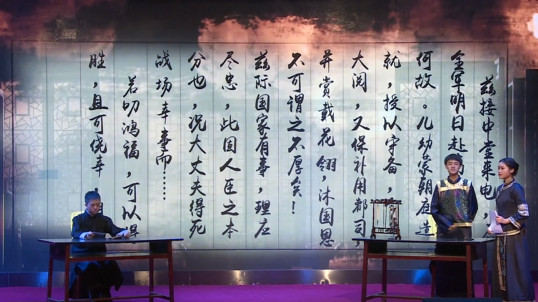 兹接中堂来电，
全军明日赴
何故。儿幼蒙朝廷造
就，授以守备，
大阅，又保补用都司，
并赏戴花翎，沐国恩
不可谓之不厚矣！
兹际国家有事，理应
尽忠，此固人臣之本
分也，况大丈夫得死
战场幸事而……
若叨鸿福，可以得
胜，且可侥幸